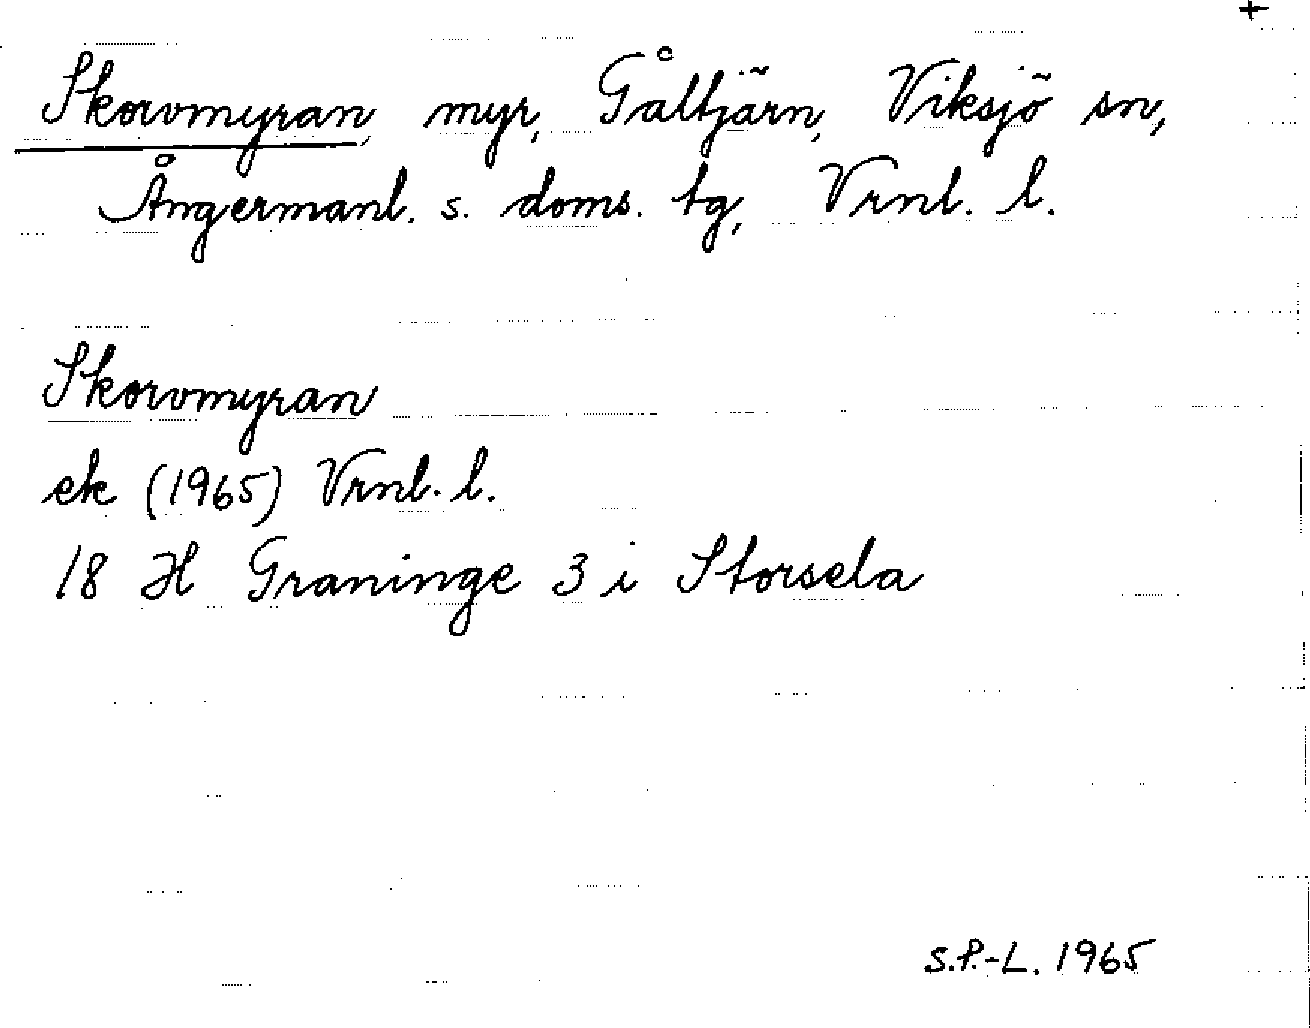 +
Skorvmyran, myr, Gåltjärn, Viksjö sn,
Ångermanl. s. doms. tg, Vrnl. l.
Skorvmyran
ek (1965) Vrnl. l.
18 H Graninge 3 i Storsela
S.P.-L. 1965